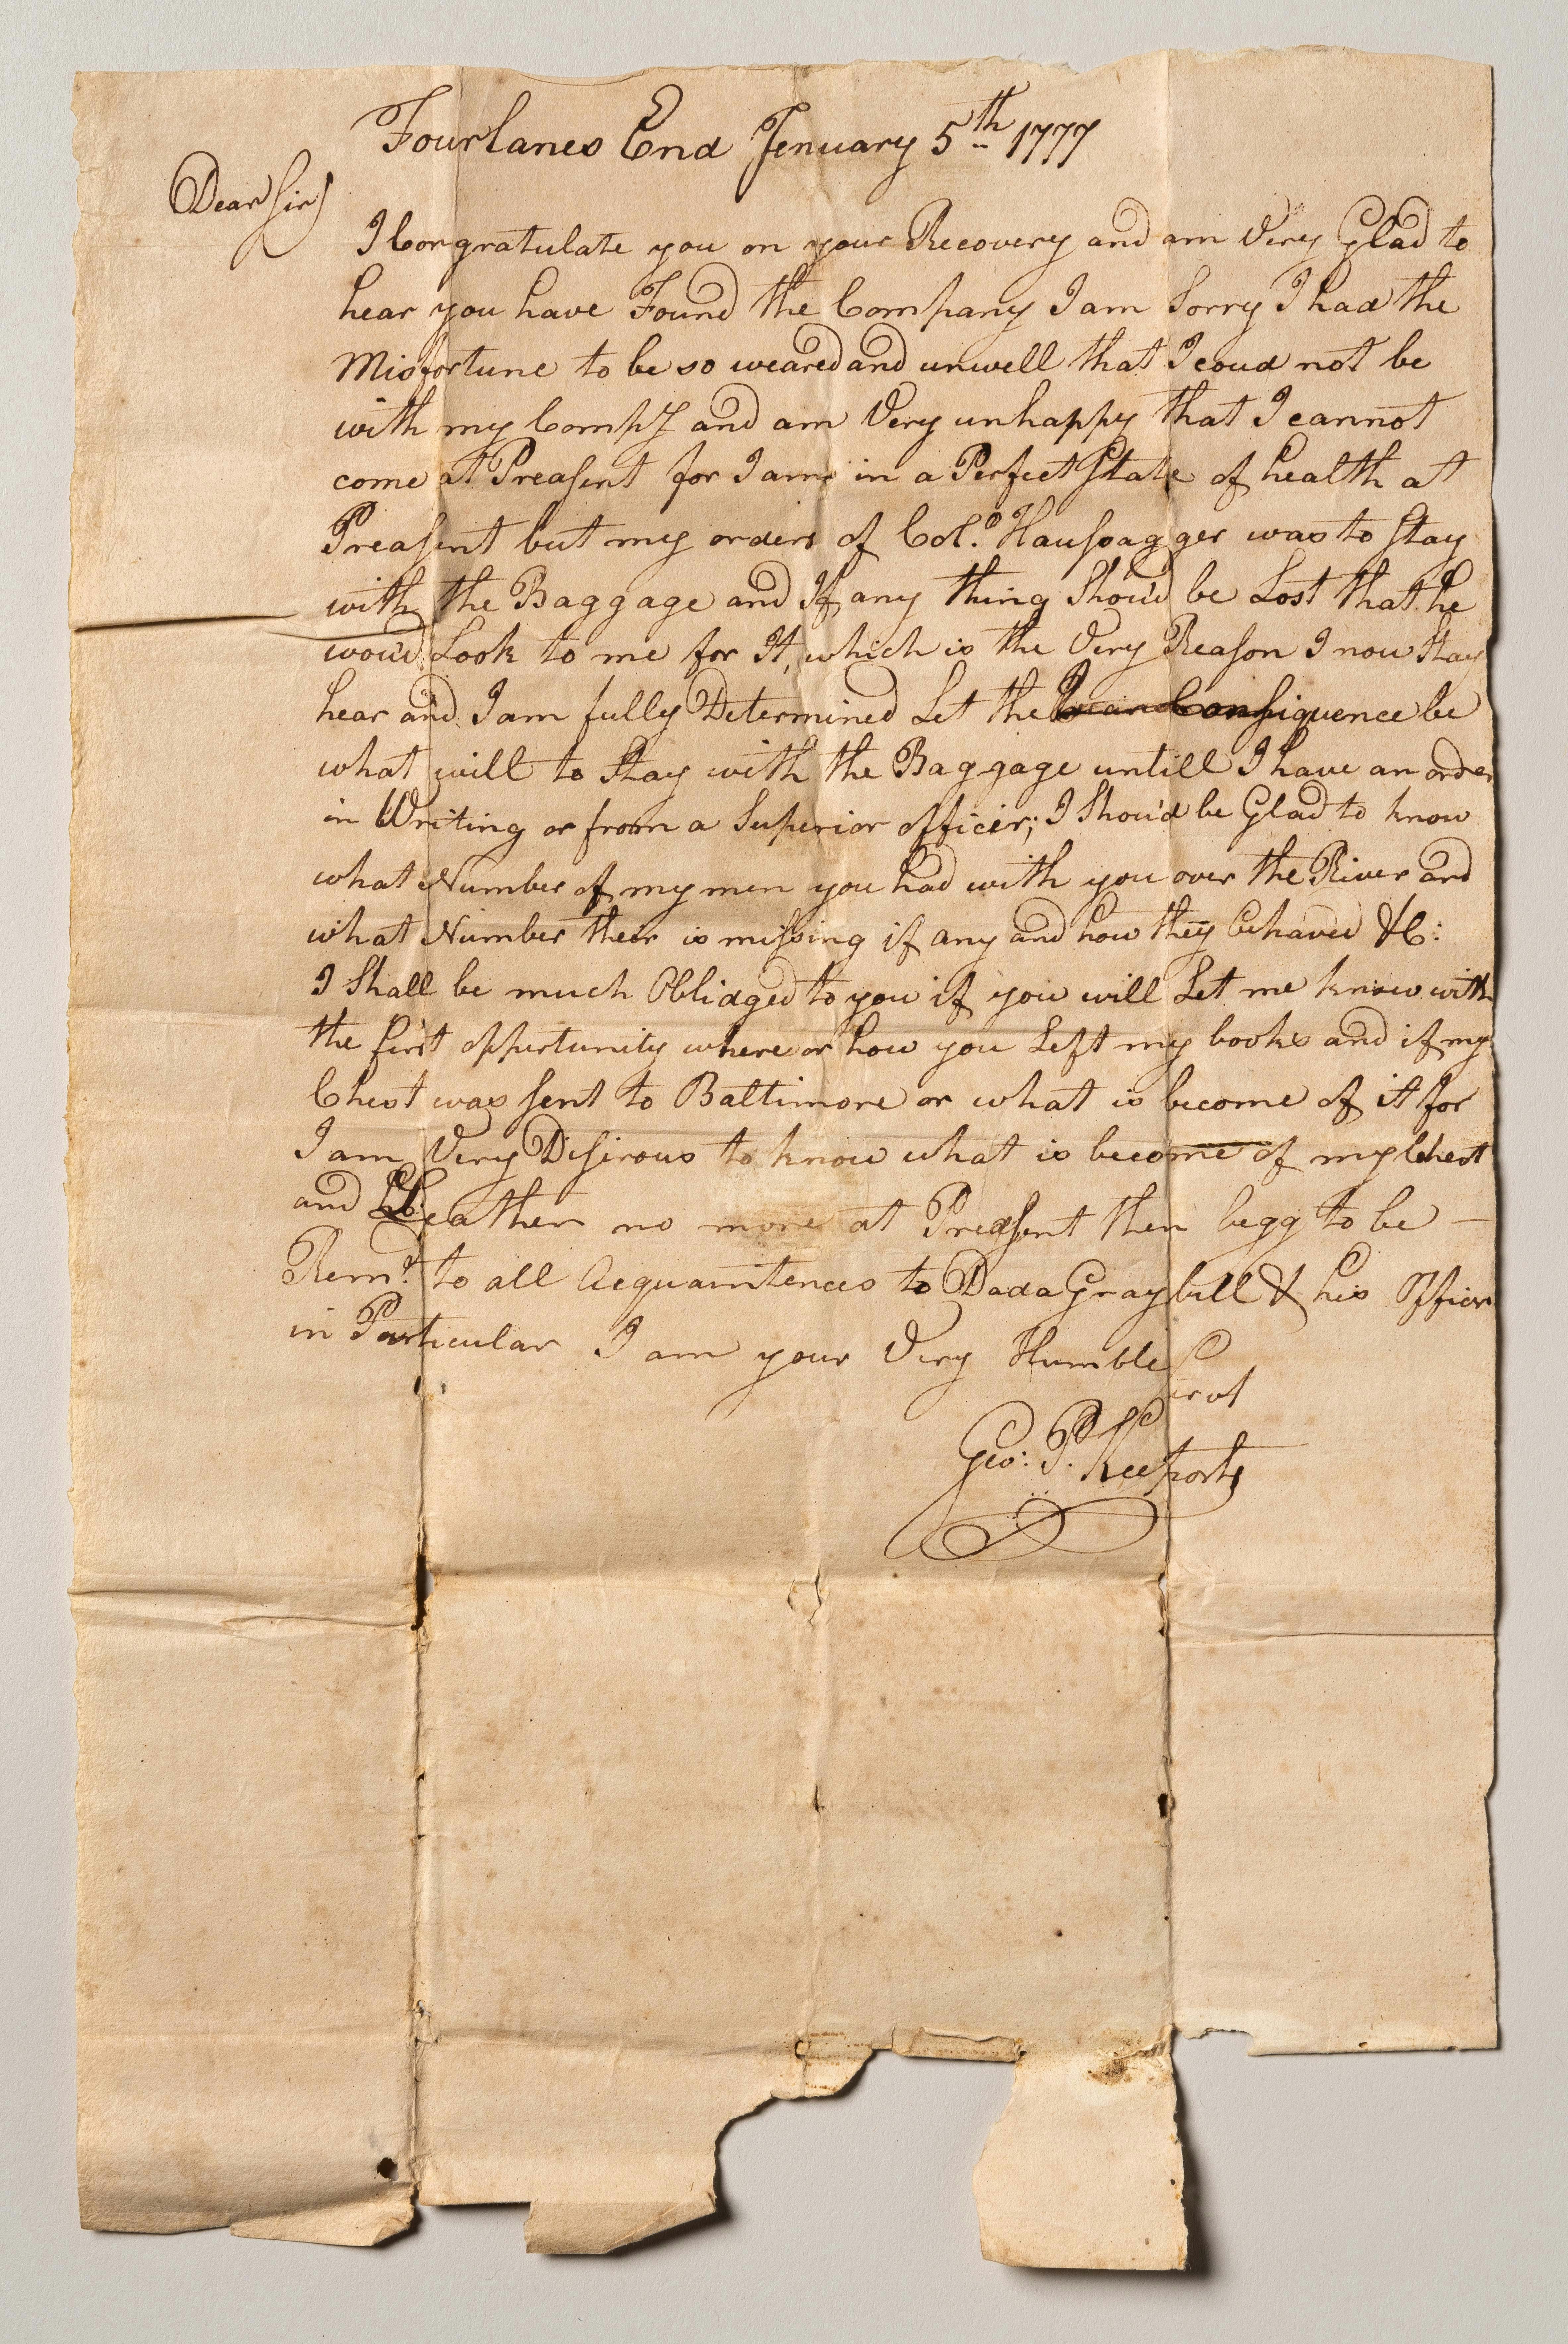 Fourlanes End Jenuary 5th 1777
Dear Sir
I Congratulate you on your Recovery and am Very Glad to
hear you have Found the Company I am Sorry I had the
Misfortune to be so weared and unwell that I coud not be
with my Compy and am Very unhappy that I cannot
come at Preasent for I am in a Perfect State of health at
Preasent but my orders of Col.o Haussagger was to Stay
with the Baggage and If any thing Shou'd be Lost that he
wou'd Look to me for It, which is the Very Reason I now Stay
hear and I am fully Determined Let the Consiquence be
what will to Stay with the Baggage untill I have an order
in Writing or from a Superior officer; I Shou'd be Glad to know
what Number of my men you had with you over the River and
what Number their is missing if any and how they behaved &C:
I Shall be much Oblidged to you if you will Let me know with
the first oppertunity where or how you Left my books and if my
Chest was sent to Baltimore or what is become of it for
I am Very Desirous to know what is become of my Chest
and Leather no more at Preasent then begg to be —
Rem.d to all Acquaintences to Dada Graybill & his Officers
in Particular I am your Very Humble
Servt
Geo: P. Keeports